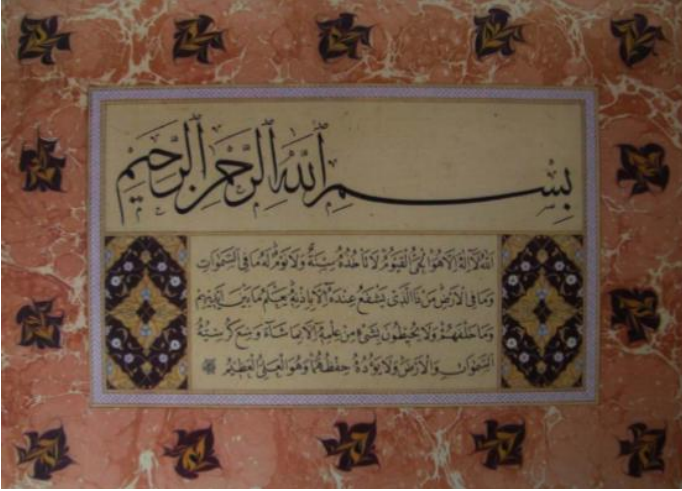 بِسْمِ ٱللَّهِ ٱلرَّحْمٰنِ ٱلرَّحِيمِ
اَللّٰهُ لَٓا اِلٰهَ اِلَّا هُوَ الْحَىُّ الْقَيُّومُ لَا تَأْخُذُهُ سِنَةٌ وَلَا نَوْمٌ لَهُ مَا فِى السَّمٰوَاتِ
وَمَا فِى الْاَرْضِ مَنْ ذَا الَّذِى يَشْفَعُ عِنْدَهُ اِلَّا بِاِذْنِهِ يَعْلَمُ مَا بَيْنَ اَيْدِيهِمْ
وَمَا خَلْفَهُمْ وَلَا يُحِيطُونَ بِشَىْءٍ مِنْ عِلْمِهِ اِلَّا بِمَا شَٓاءَ وَسِعَ كُرْسِيُّهُ
السَّمٰوَاتِ وَالْاَرْضَ وَلَا يَؤُدُهُ حِفْظُهُمَا وَهُوَ الْعَلِىُّ الْعَظِيمُ